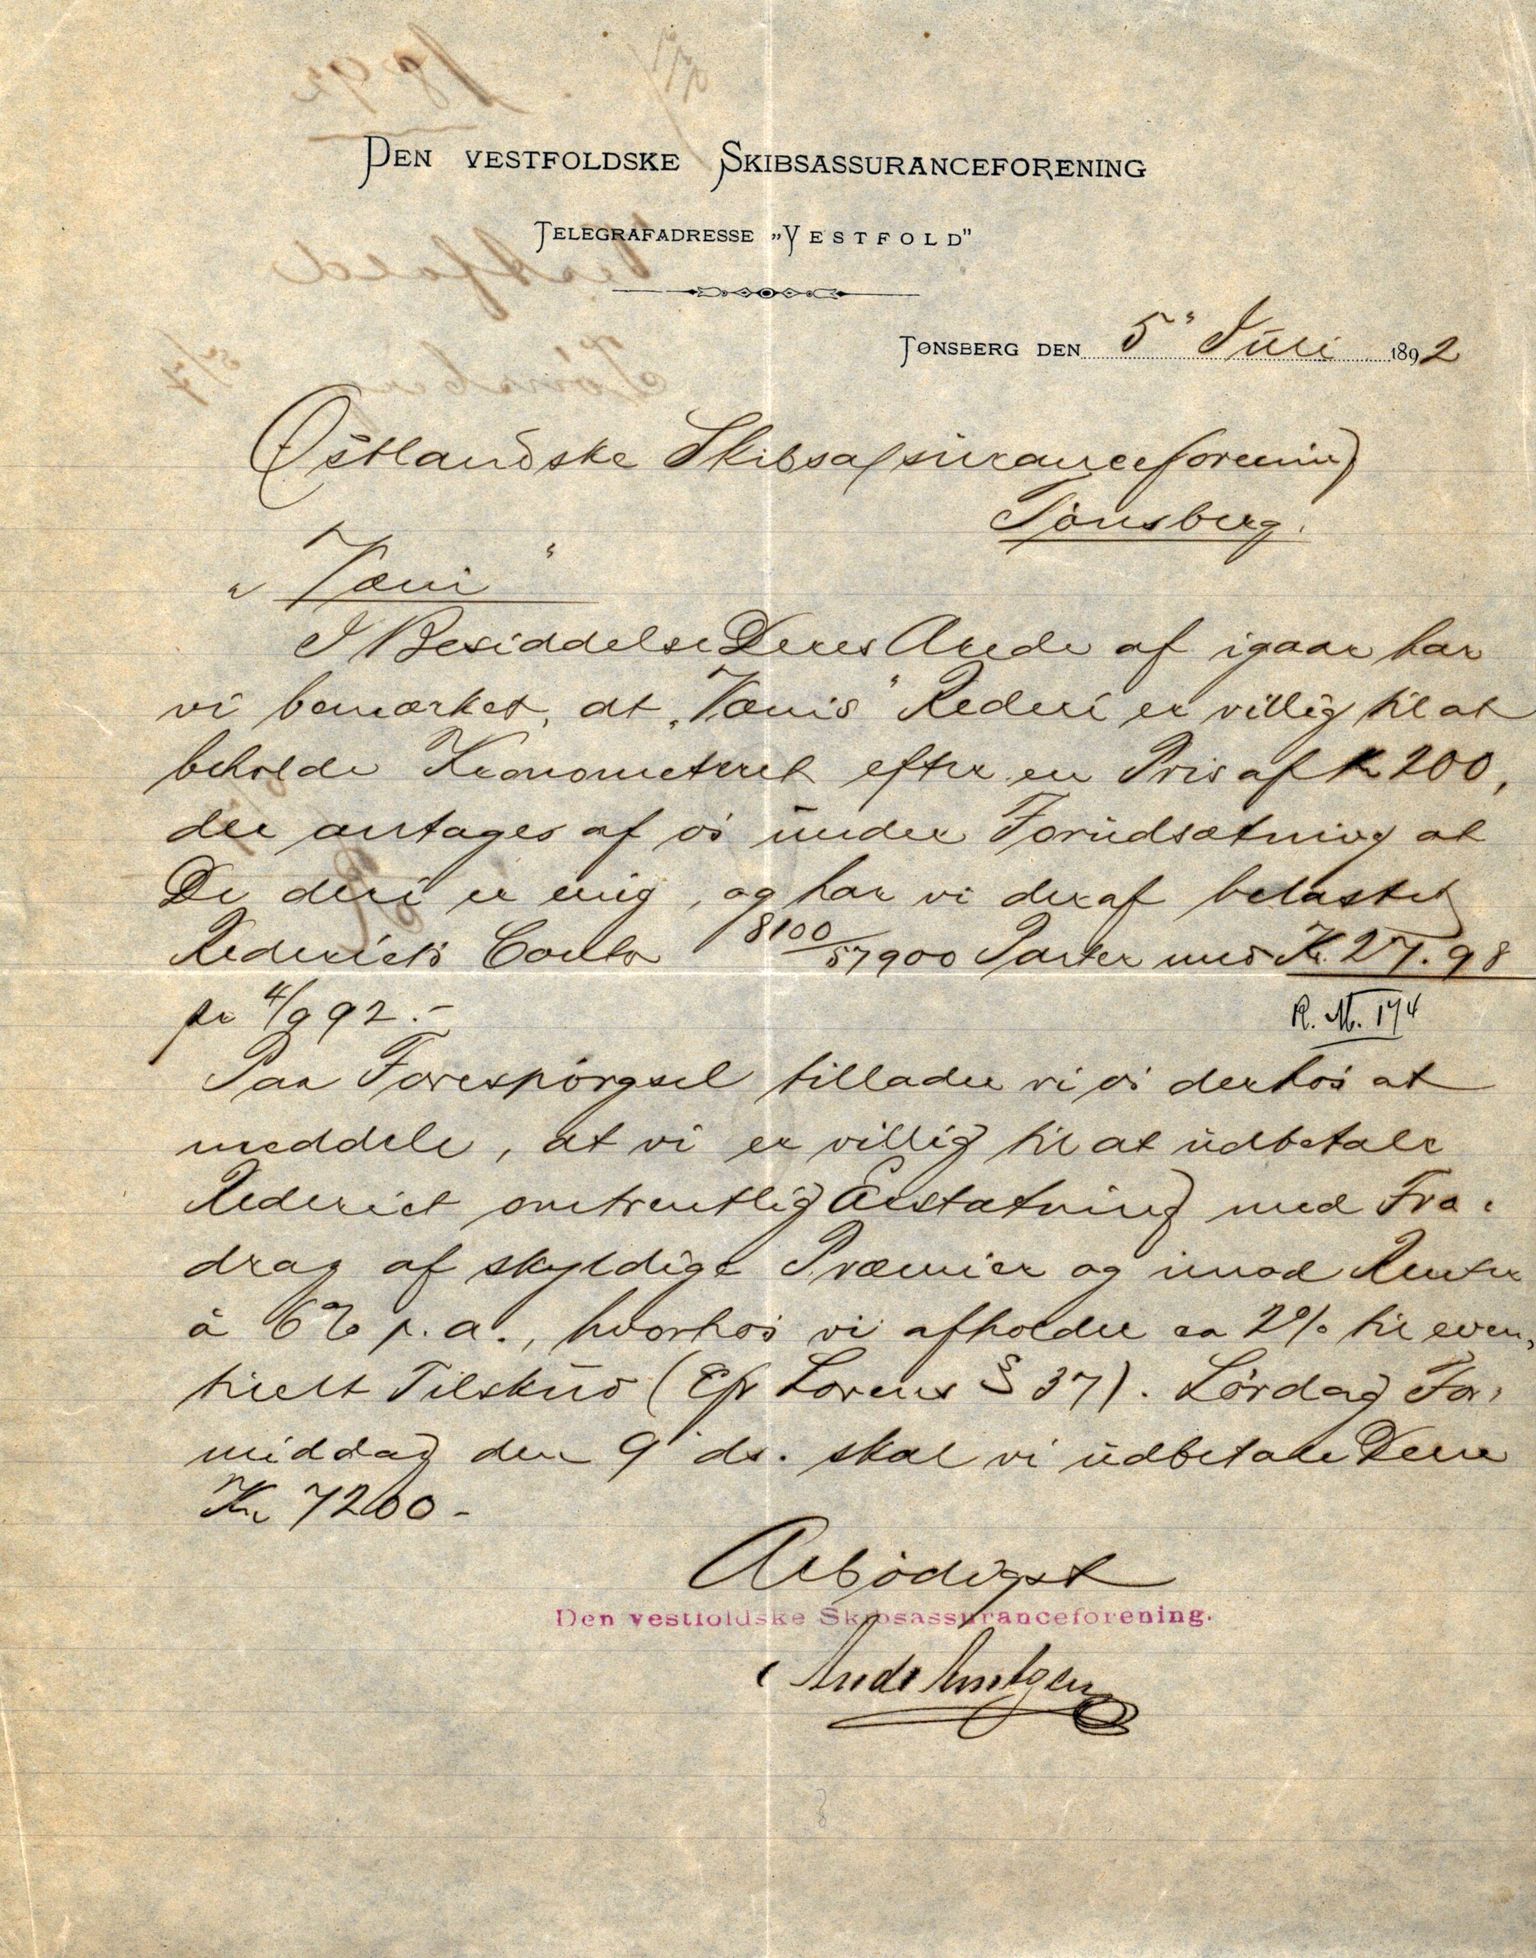 DEN VESTFOLDSKE SKIBSASSURANCEFORENING
TELEGRAFADRESSE „VESTFOLD"
TØNSBERG DEN 5" Juli 1892
Østlandske Skibsassuranceforening
Tønsberg.
„ "
I Besiddelse Deres Ærede af igaar har
vi bemærket, at „ " Rederi er villig til at
beholde Kronometeret efter en Pris af Kr 200,
der antages af os under Forudsætning at
De deri er enig, og har vi deraf belastet
Rederiets Conto 8100/57900 Parter med Kr. 27.98
pr 4/9 92.-
R. M. 174
Paa Forespørgsel tillader vi os derhos at
meddele, at vi er villig til at udbetale
Rederiet omtrentlig Erstatning med Fra-
drag af skyldige Præmier og imod Renter
à 6% p.a., hvorhos vi afholder ca 2% til even-
tuelt Tilskud (Cfr Lovens § 37). Lørdag For-
middag den 9 ds. skal vi udbetale Dem
Kr 7200-
Ærbødigst
Den vestfoldske Skibsassuranceforening.